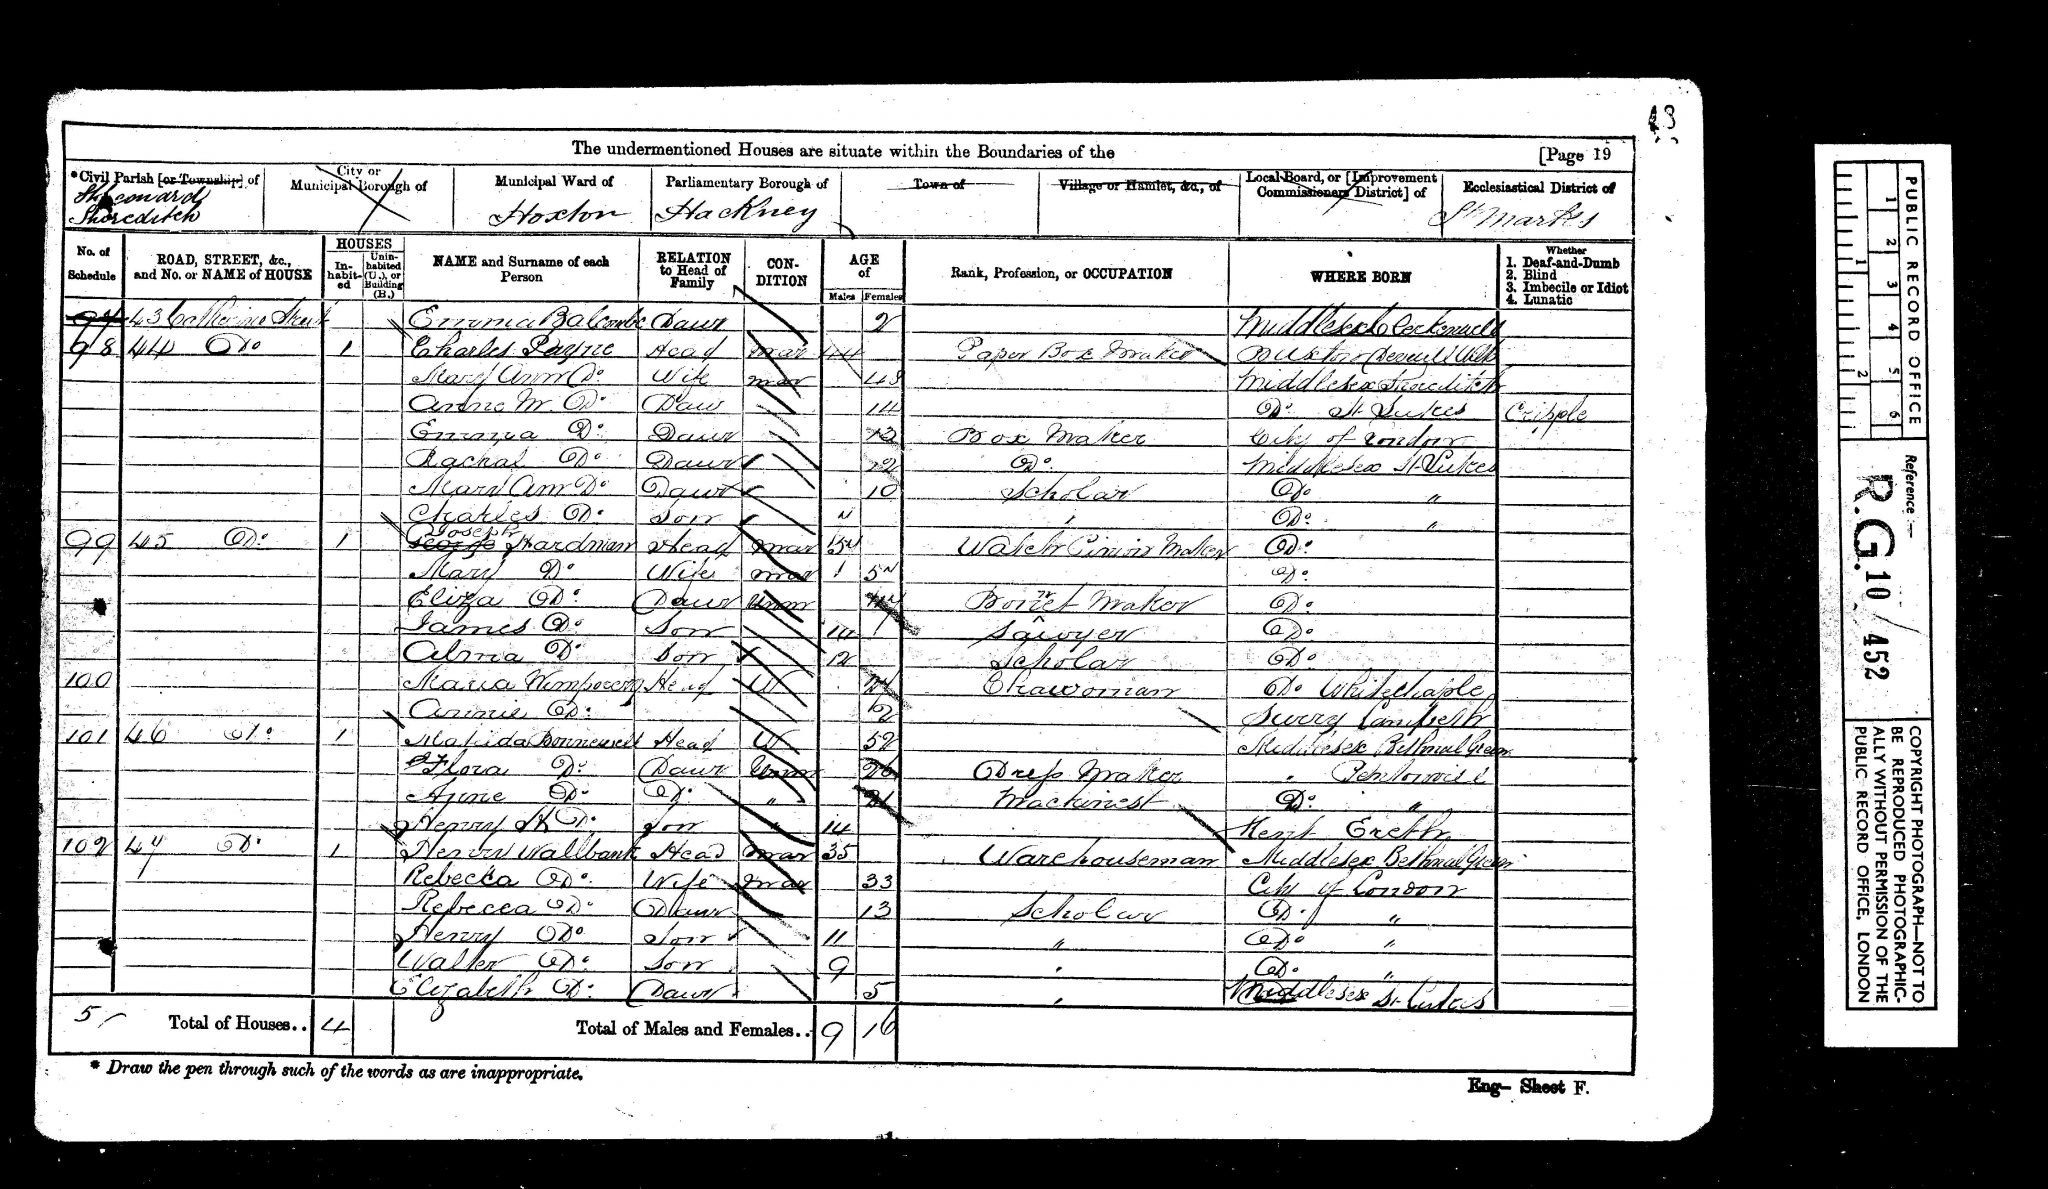 43
The undermentioned Houses are situate within the Boundaries of the [Page 19
*Civil Parish [or Township] of
City or Municipal Borough of
Municipal Ward of
Parliamentary Borough of
Town of
Village or Hamlet, &c., of
Local Board, or [Improvement Commissioners District] of
Ecclesiastical District of
St Leonard Shoreditch
Hoxton
Hackney
St Marks
No. of Schedule
ROAD, STREET, &c., and No. or NAME of HOUSE
HOUSES
Inhabited
Uninhabited (U.), or Building (B.)
NAME and Surname of each Person
RELATION to Head of Family
CONDITION
AGE of
Males Females
Rank, Profession, or OCCUPATION
WHERE BORN
Whether
1. Deaf-and-Dumb
2. Blind
3. Imbecile or Idiot
4. Lunatic
43 Catherine Street Emma Balcombe Daur 2 Middlesex Clerkenwell
98 44 Do 1 Charles Payne Head mar 44 Paper Box Maker
Mary Ann Do Wife mar 43 Middlesex Shoreditch
Anne M. Do Daur 14 Do St Lukes Cripple
Emma Do Daur 13 Box Maker City of London
Rachal Do Daur Do Middlesex St Lukes
Mary Ann Do Daur 10 Scholar Do "
Charles Do Son Do "
99 45 Do 1 George Joseph Hardman Head mar Maker Do
Mary Do Wife mar Do
Eliza Do Daur Unm Bonnet Maker Do
James Do Son 14 Sawyer Do
Alma Do Son 12 Scholar Do
100 Maria Head W Chawoman Do Whitechaple
Annie Do Surry Lambeth
101 46 Do 1 Matilda Bonnewell Head W 52 Middlesex Bethnal Green
Flora Do Daur Unm 26 Dress Maker " Pentonvile
Anne Do Do " 21 Machinest Do "
Henry Do Son " 14 Kent Ereth
102 47 Do 1 Henry Wallbank Head mar 35 Warehouseman Middlesex Bethnal Green
Rebecca Do Wife mar 33 City of London
Rebecca Do Daur 13 Scholar Do "
Henry Do Son 11 " Do "
Walter Do Son 9 " Do "
Elizabeth Do Daur 5 " Middlesex St Lukes
5 Total of Houses.. 4 Total of Males and Females.. 9 16
* Draw the pen through such of the words as are inappropriate.
Eng— Sheet F.
PUBLIC RECORD OFFICE
1 2 3 4 5 6
1 2
Reference:—
R.G. 10 / 452
COPYRIGHT PHOTOGRAPH—NOT TO
BE REPRODUCED PHOTOGRAPHIC-
ALLY WITHOUT PERMISSION OF THE
PUBLIC RECORD OFFICE, LONDON